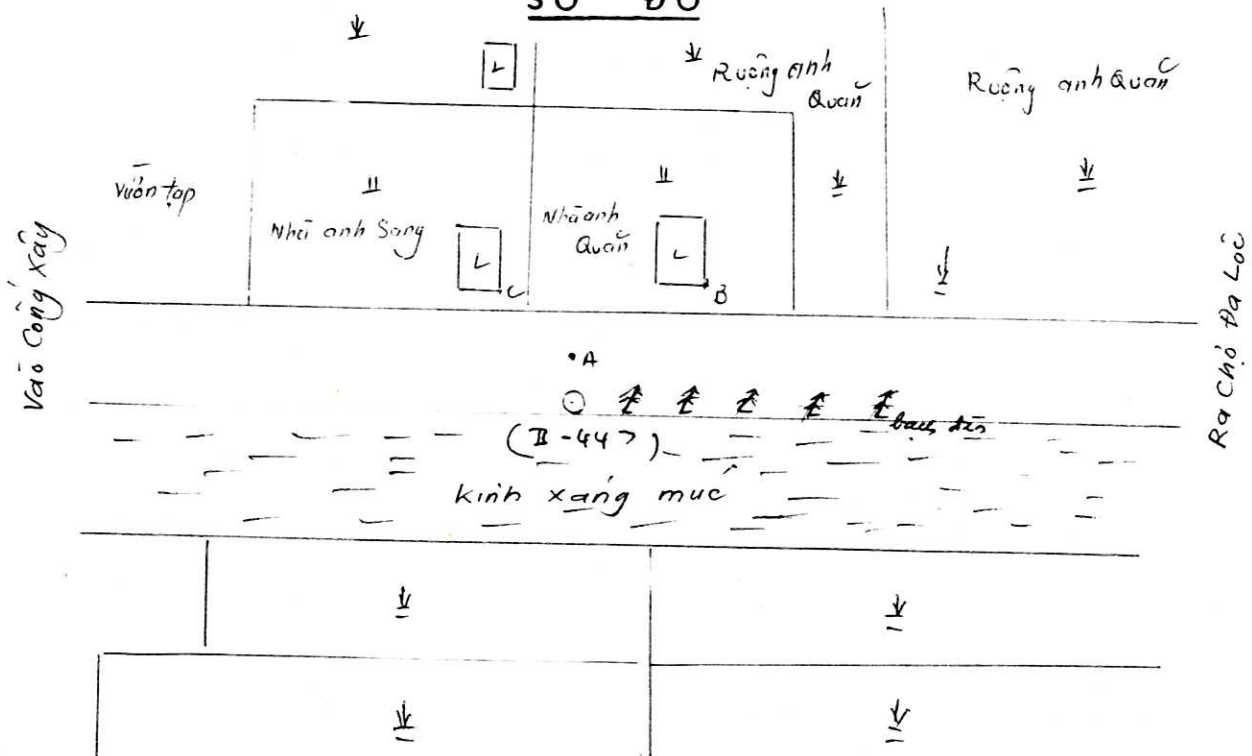 SƠ ĐỒ
L
Ruộng anh
Quấn
Ruộng anh Quấn
Vườn tạp
Nhà anh Sang
L
C
Nhà anh
Quấn
L
B
Vào Cống Xây
Ra Chợ Đa Lộc
A
bạch đàn
(II-447)
kinh xáng múc